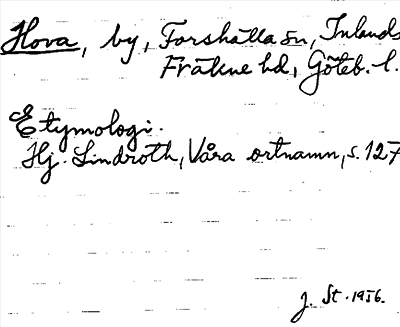 Hova, by, Forshälla sn, Inlands
Fräkne hd, Göteb. l.
Etymologi.
Hj. Lindroth, Våra ortnamn, s. 127
J. St. 1956.